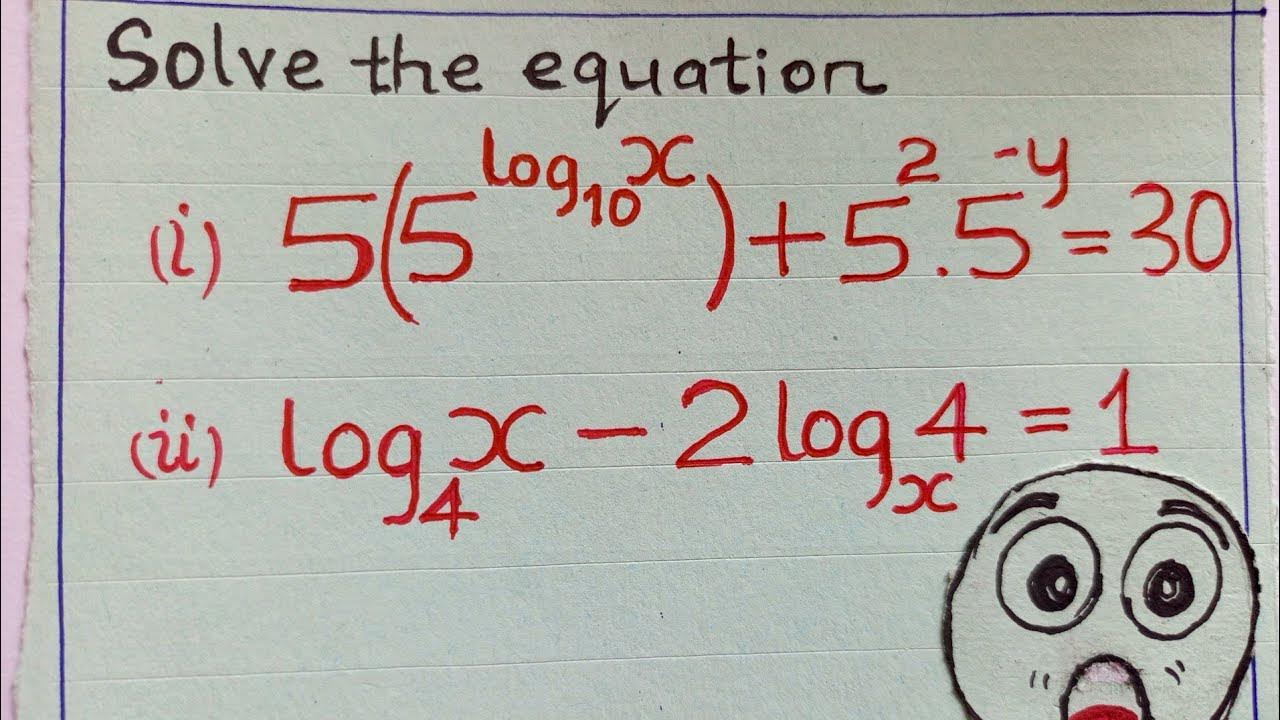 Solve the equation
(i) 5(5^{log_{10}x}) + 5^2 . 5^{-y} = 30
(ii) log_4 x - 2 log_x 4 = 1